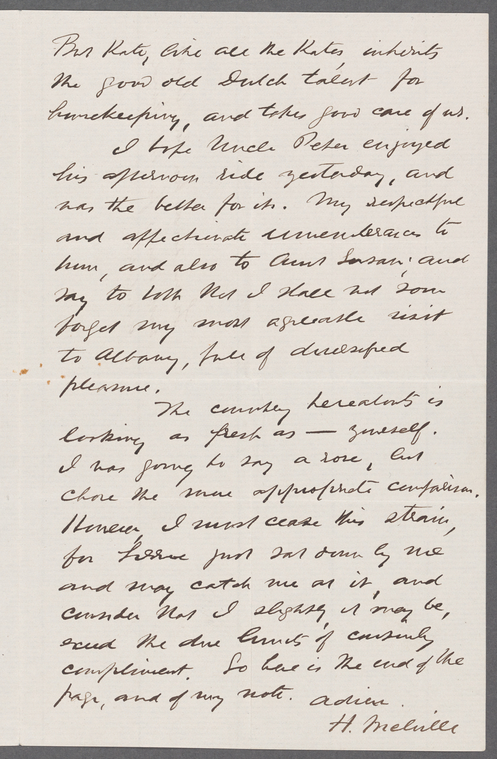 But Kate, like all the Kates, inherits
the good old Dutch talent for
housekeeping, and takes good care of us.
I hope Uncle Peter enjoyed
his afternoon ride yesterday, and
was the better for it. My respectful
and affectionate remembrances to
him, and also to Aunt Susan; and
say to both that I shall not soon
forget my most agreeable visit
to Albany, full of diversified
pleasure.
The country hereabouts is
looking as fresh as — yourself.
I was going to say a rose, but
chose the more appropriate comparison.
However, I must cease this strain,
for just sat down by me
and may catch me at it, and
consider that I slightly, it may be,
exceed the due limits of cousinly
compliment. So here is the end of the
page, and of my note. Adieu.
H. Melville